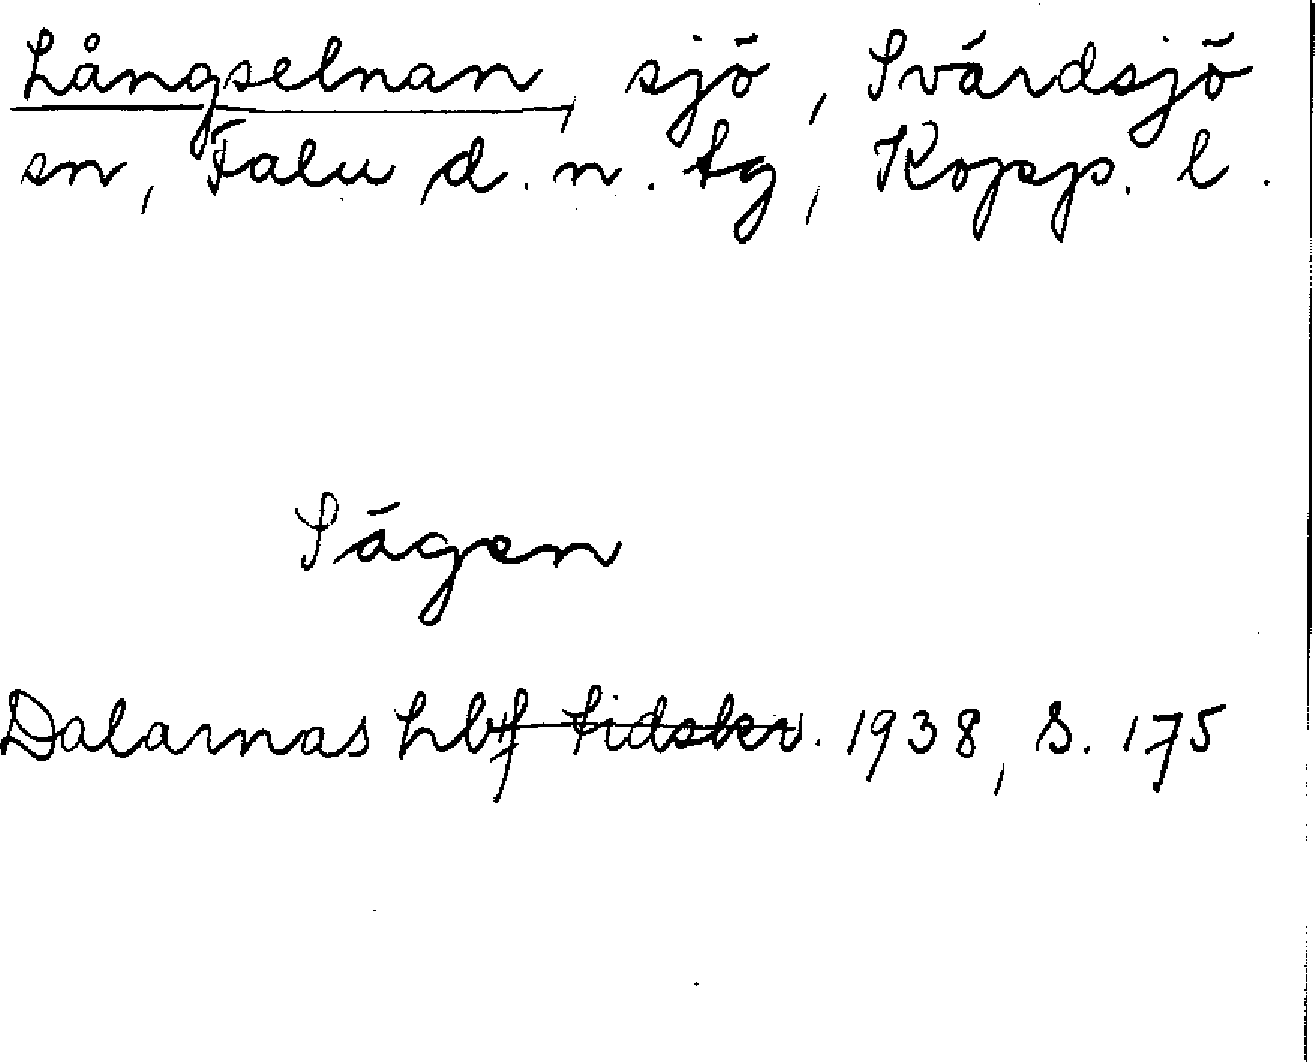 Långselnan, sjö, Svärdsjö
sn, Falu d. n. tg, Kopp. l.
Sägen
Dalarnas hbf tidskr. 1938, S. 175